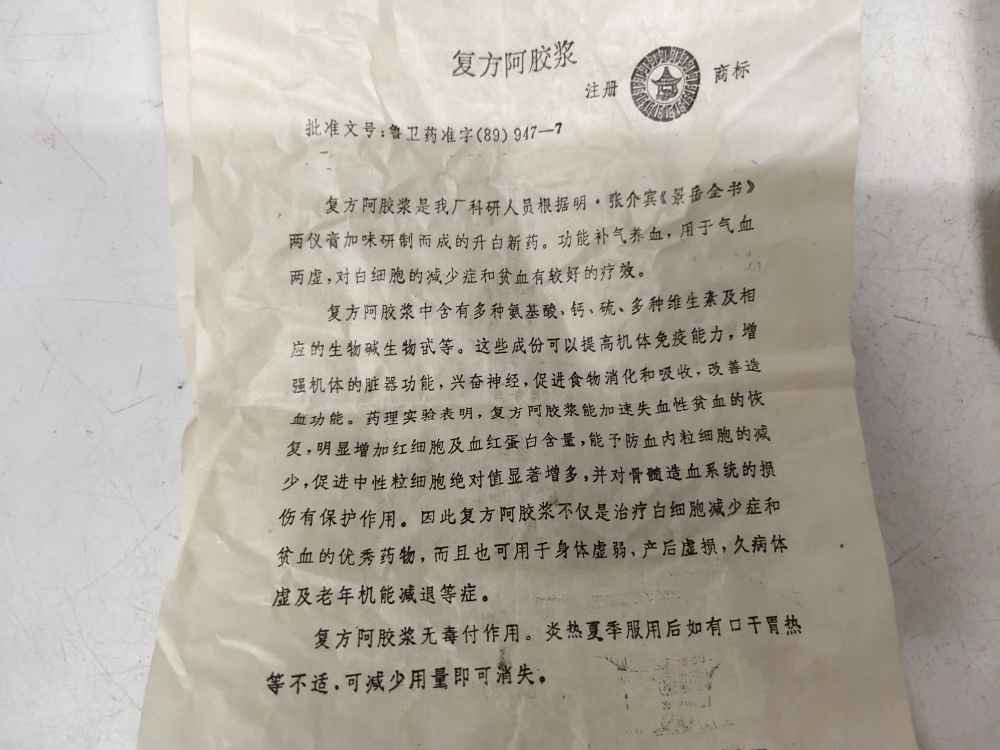 复方阿胶浆
注册 商标
批准文号：鲁卫药准字(89)947—7
复方阿胶浆是我厂科研人员根据明·张介宾《景岳全书》
两仪膏加味研制而成的升白新药。功能补气养血，用于气血
两虚，对白细胞的减少症和贫血有较好的疗效。
复方阿胶浆中含有多种氨基酸、钙、硫、多种维生素及相
应的生物碱生物甙等。这些成份可以提高机体免疫能力，增
强机体的脏器功能，兴奋神经，促进食物消化和吸收，改善造
血功能。药理实验表明，复方阿胶浆能加速失血性贫血的恢
复，明显增加红细胞及血红蛋白含量，能予防血内粒细胞的减
少，促进中性粒细胞绝对值显著增多，并对骨髓造血系统的损
伤有保护作用。因此复方阿胶浆不仅是治疗白细胞减少症和
贫血的优秀药物，而且也可用于身体虚弱、产后虚损，久病体
虚及老年机能减退等症。
复方阿胶浆无毒付作用。炎热夏季服用后如有口干胃热
等不适，可减少用量即可消失。